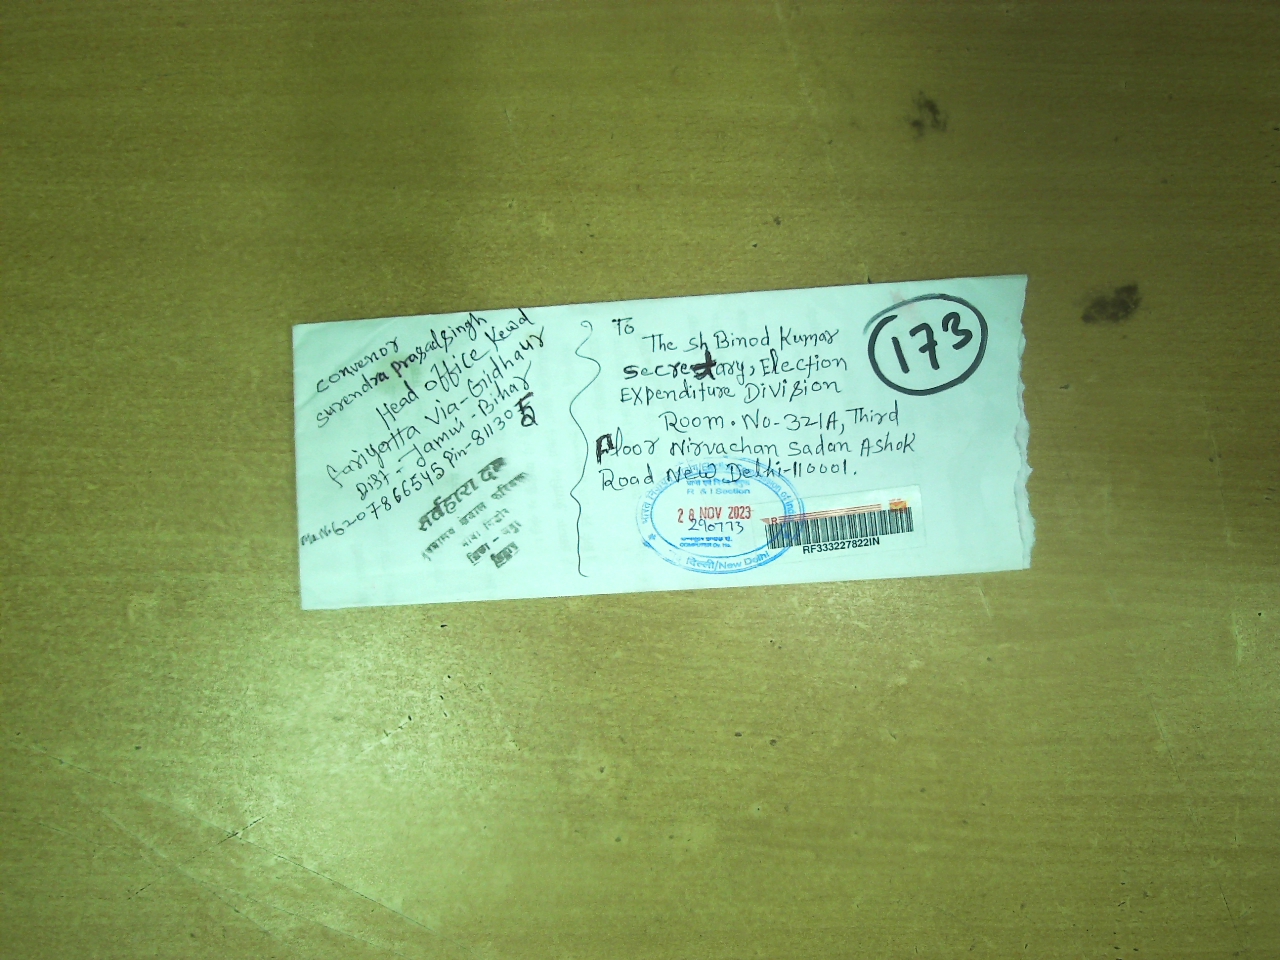 convenor
surendra Prasadsingh
Head office Kewd
fariyatta Via-Gidhaur
Dist- Jamui-Bihar
Pin-811305
Mo.No6207866545
सर्वहारा दल
To
The sh Binod Kumar
secretary, Election
Expenditure Division
Room. No-321A, Third
Floor Nirvachan sadan Ashok
Road New Delhi-110001.
173
R & I Section
28 NOV 2023
290773
दिल्ली/New Delhi
R
RF333227822IN